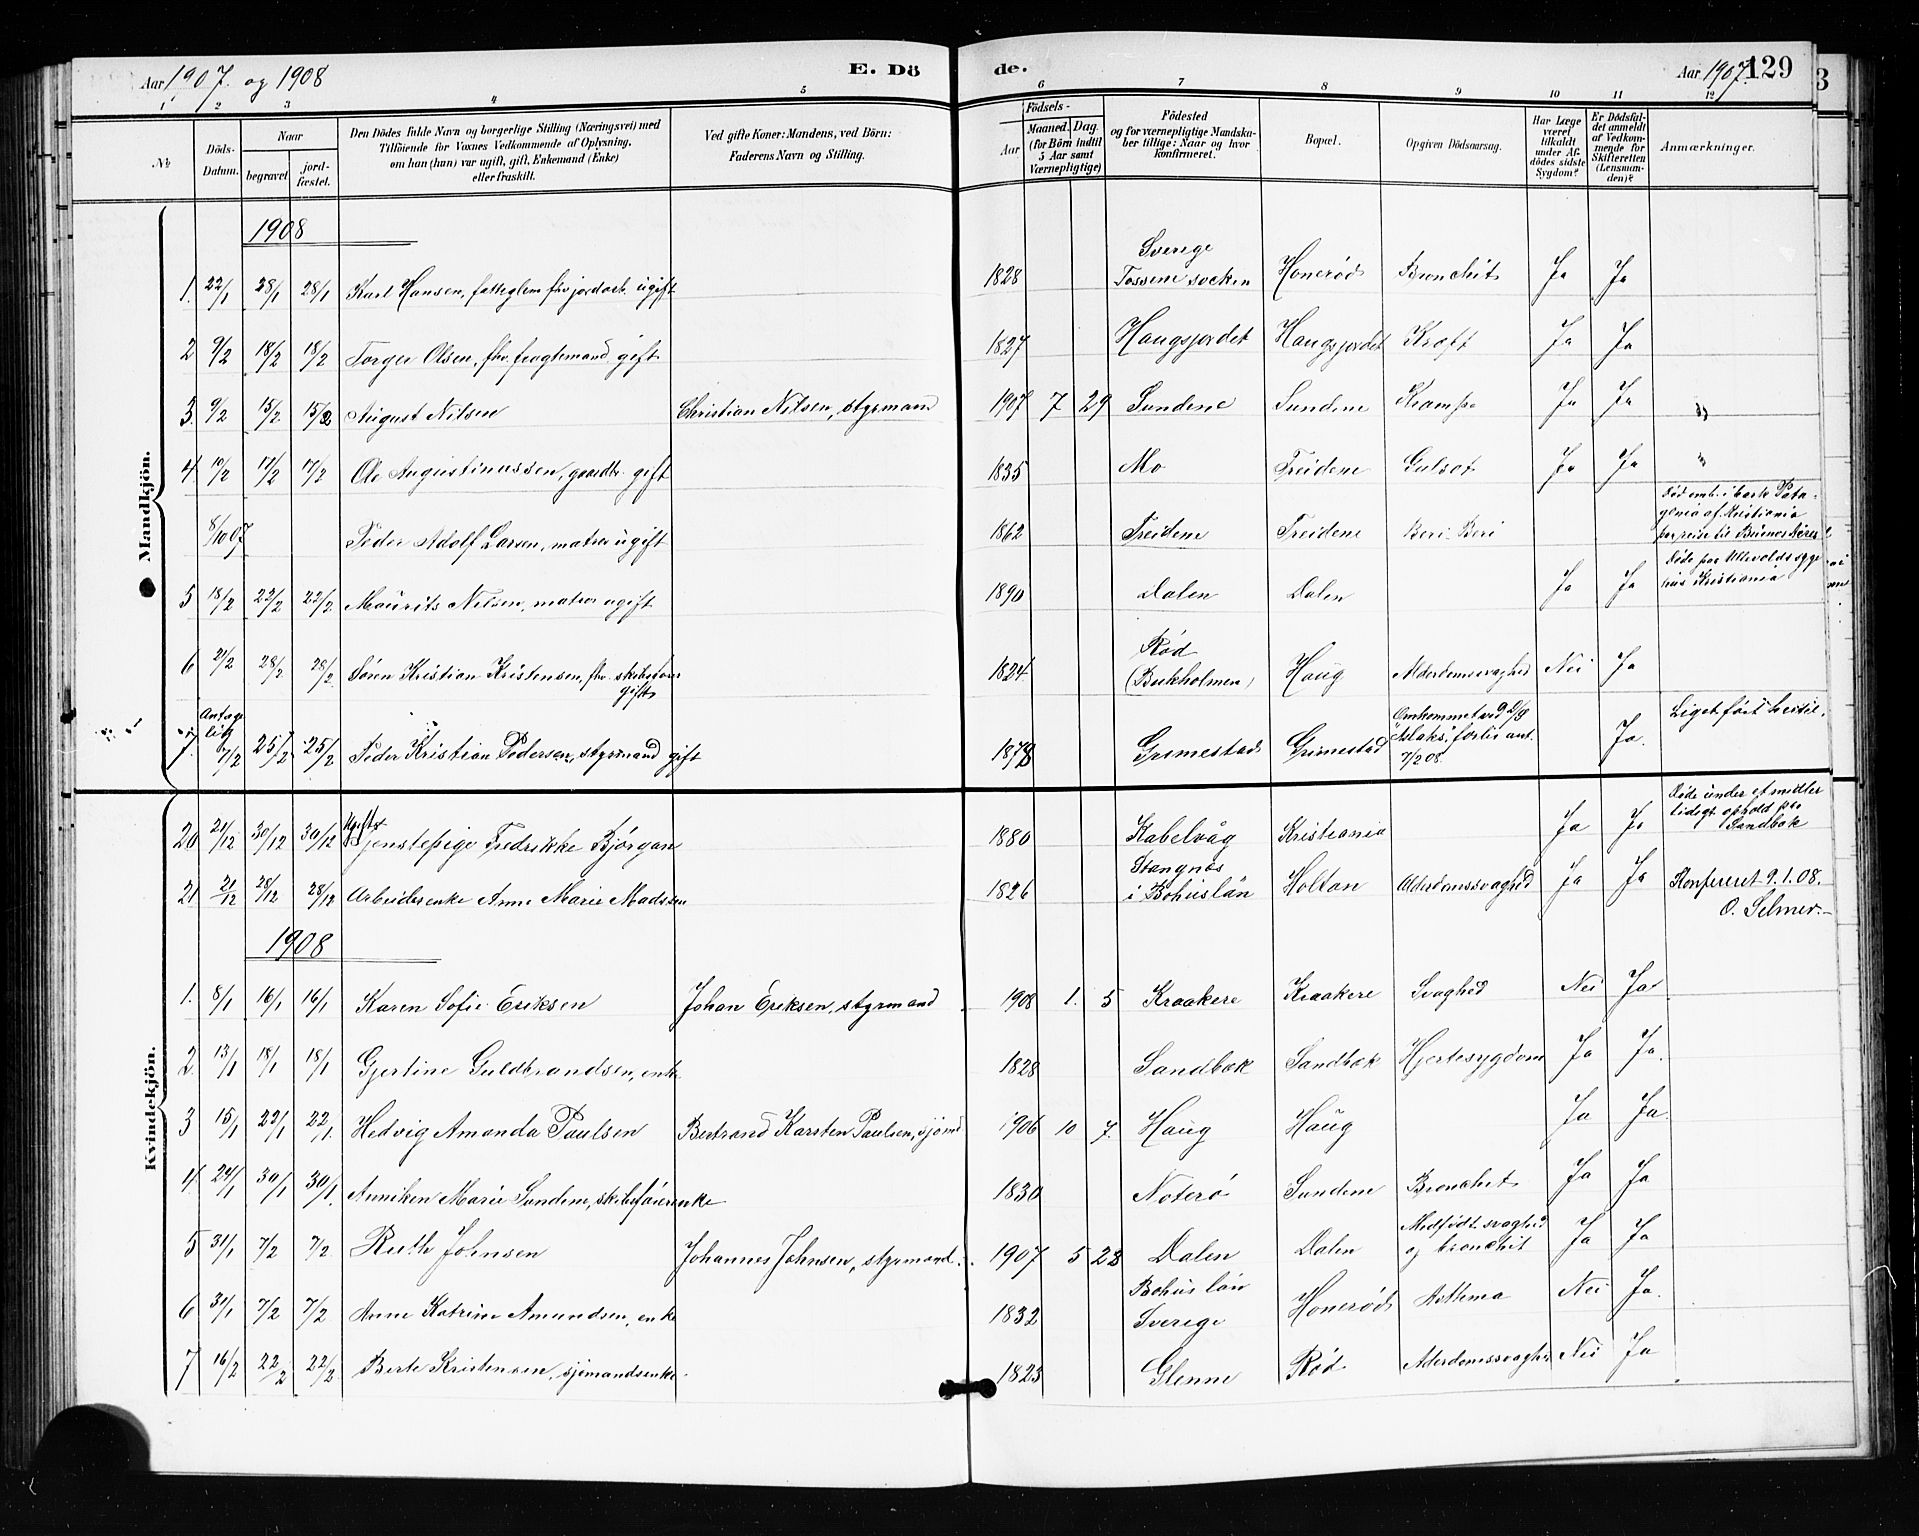 Aar 1907. og 1908
E. Dö de.
Aar 1907. 129
3
1 2 3 4 5 6 7 8 9 10 11 12
№
Döds-Datum.
Naar
begravet
jord-fæstet.
Den Dödes fulde Navn og borgerlige Stilling (Næringsvei) med
Tilföiende for Voxnes Vedkommende af Oplysning,
om han (hun) var ugift, gift, Enkemand (Enke)
eller fraskilt.
Ved gifte Koner: Mandens, ved Börn:
Faderens Navn og Stilling.
Födsels-
Aar
Maaned. Dag.
(for Börn indtil
5 Aar samt
Værnepligtige)
Födested
og for værnepligtige Mandska-
ber tillige: Naar og hvor
konfirmeret.
Bopæl.
Opgiven Dödsaarsag.
Har Læge
været
tilkaldt
under Af-
dödes sidste
Sygdom?
Er Dödsfal-
det anmeldt
af Vedkom-
mende for
Skifteretten
(Lensman-
den)?
Anmærkninger.
Mandkjön.
1908
1. 22/1 28/1 28/1 Karl Hansen, fatteglem fhv jordarb. ugift 1828 Sverige Tossene socken Honerød Bronchit Ja Ja
2 9/2 18/2 18/2 Torger Olsen, fhv. fragtemand gift 1827 Haugsjordet Haugsjordet Kræft Ja Ja
3. 9/2 15/2 15/2 August Nilsen Christian Nilsen, styrmand 1907 7 29 Sundene Sundene Krampe Ja Ja
4 10/2 17/2 17/2 Ole Augustinussen, gaardbr. gift 1835 Mo Treidene Gulsot Ja Ja
8/10 07 Peder Adolf Larsen, matros ugift 1862 Treidene Treidene Beri-Beri Død omb. i bark Pata-
gonia af Kristiania
paa reise til Buenos Aires
5 18/2 22/2 22/2 Maurits Nilsen, matros ugift 1890 Dalen Dalen Ja Ja Døde paa Ullevolds syge
hus Kristiania
6 21/2 28/2 28/2 Søren Kristian Kristensen, fhv. skibsfører
gift 1824 Rød
(Bukholmen) Haug Alderdomssvaghed Nei Ja
7. Antage
lig 7/2 25/2 25/2 Peder Kristian Pedersen, styrmand gift 1878 Grimestad Grimestad Omkommet ved D/S
"Aslaks" forlis ant.
7/2 08. Ja. Liget ført hertil.
Kvindekjön.
20 21/12 30/12 30/12 Ugift
Tjenstepige Fredrikke Bjørgan 1880 Kabelvåg Kristiania Ja Ja Døde under et midler
tidigt ophold paa
Sandbæk
21 21/12 28/12 28/12 Arbeiderenke Anne Marie Madsen 1826 Stangnäs
i Bohuslän Holtan Alderdomssvaghed Ja Ja Konfereret 9.1.08.
O. Selmer.
1908
1. 8/1 16/1 16/1 Karen Sofie Eriksen Johan Eriksen, styrmand 1908 1. 5 Kraakere Kraakere Svaghed Nei Ja
2. 13/1 18/1 18/1 Gjertine Guldbrandsen, enke 1828 Sandbæk Sandbæk Hjertesygdom Ja Ja.
3 15/1 22/1 22/1. Hedvig Amanda Paulsen Bertrand Karsten Paulsen, sjømd 1906 10 7. Haug Haug Ja Ja.
4 24/1 30/1 30/1. Anniken Marie Sundene, skibsførerenke 1830 Noterø Sundene Bronchit Ja Ja
5 31/1 7/2 7/2 Ruth Johnsen Johannes Johnsen, styrmand. 1907 5 28 Dalen Dalen Medfødt svaghed
og bronchit Ja Ja
6 31/1 7/2 7/2 Anne Katrine Amundsen, enke 1832 Bohuslän
Sverige Honerød Asthema Nei Ja.
7 16/2 22/2 22/2 Berte Kristensen, sjømandsenke. 1823 Glenne Rød Alderdomssvaghed Nei Ja